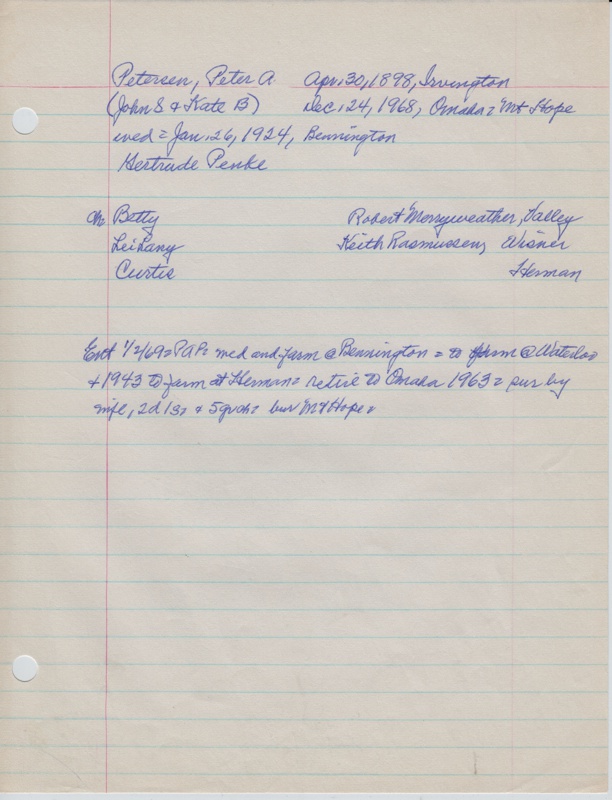 Petersen, Peter A Apr. 30, 1898, Irvington
(John S & Kate B) Dec. 24, 1968, Omaha = Mt Hope
wed = Jan. 26, 1924, Bennington
Gertrude Penke
ch Betty Robert Merryweather, Valley
LeiLany Keith Rasmussen, Wisner
Curtis Herman
Ent 1/2/69 = PAP = wed and farm @ Bennington = to farm @ Waterloo
+ 1943 to farm at Herman = retire to Omaha 1963 = sur by
wife, 2d 1s + 5grch = bur Mt Hope =